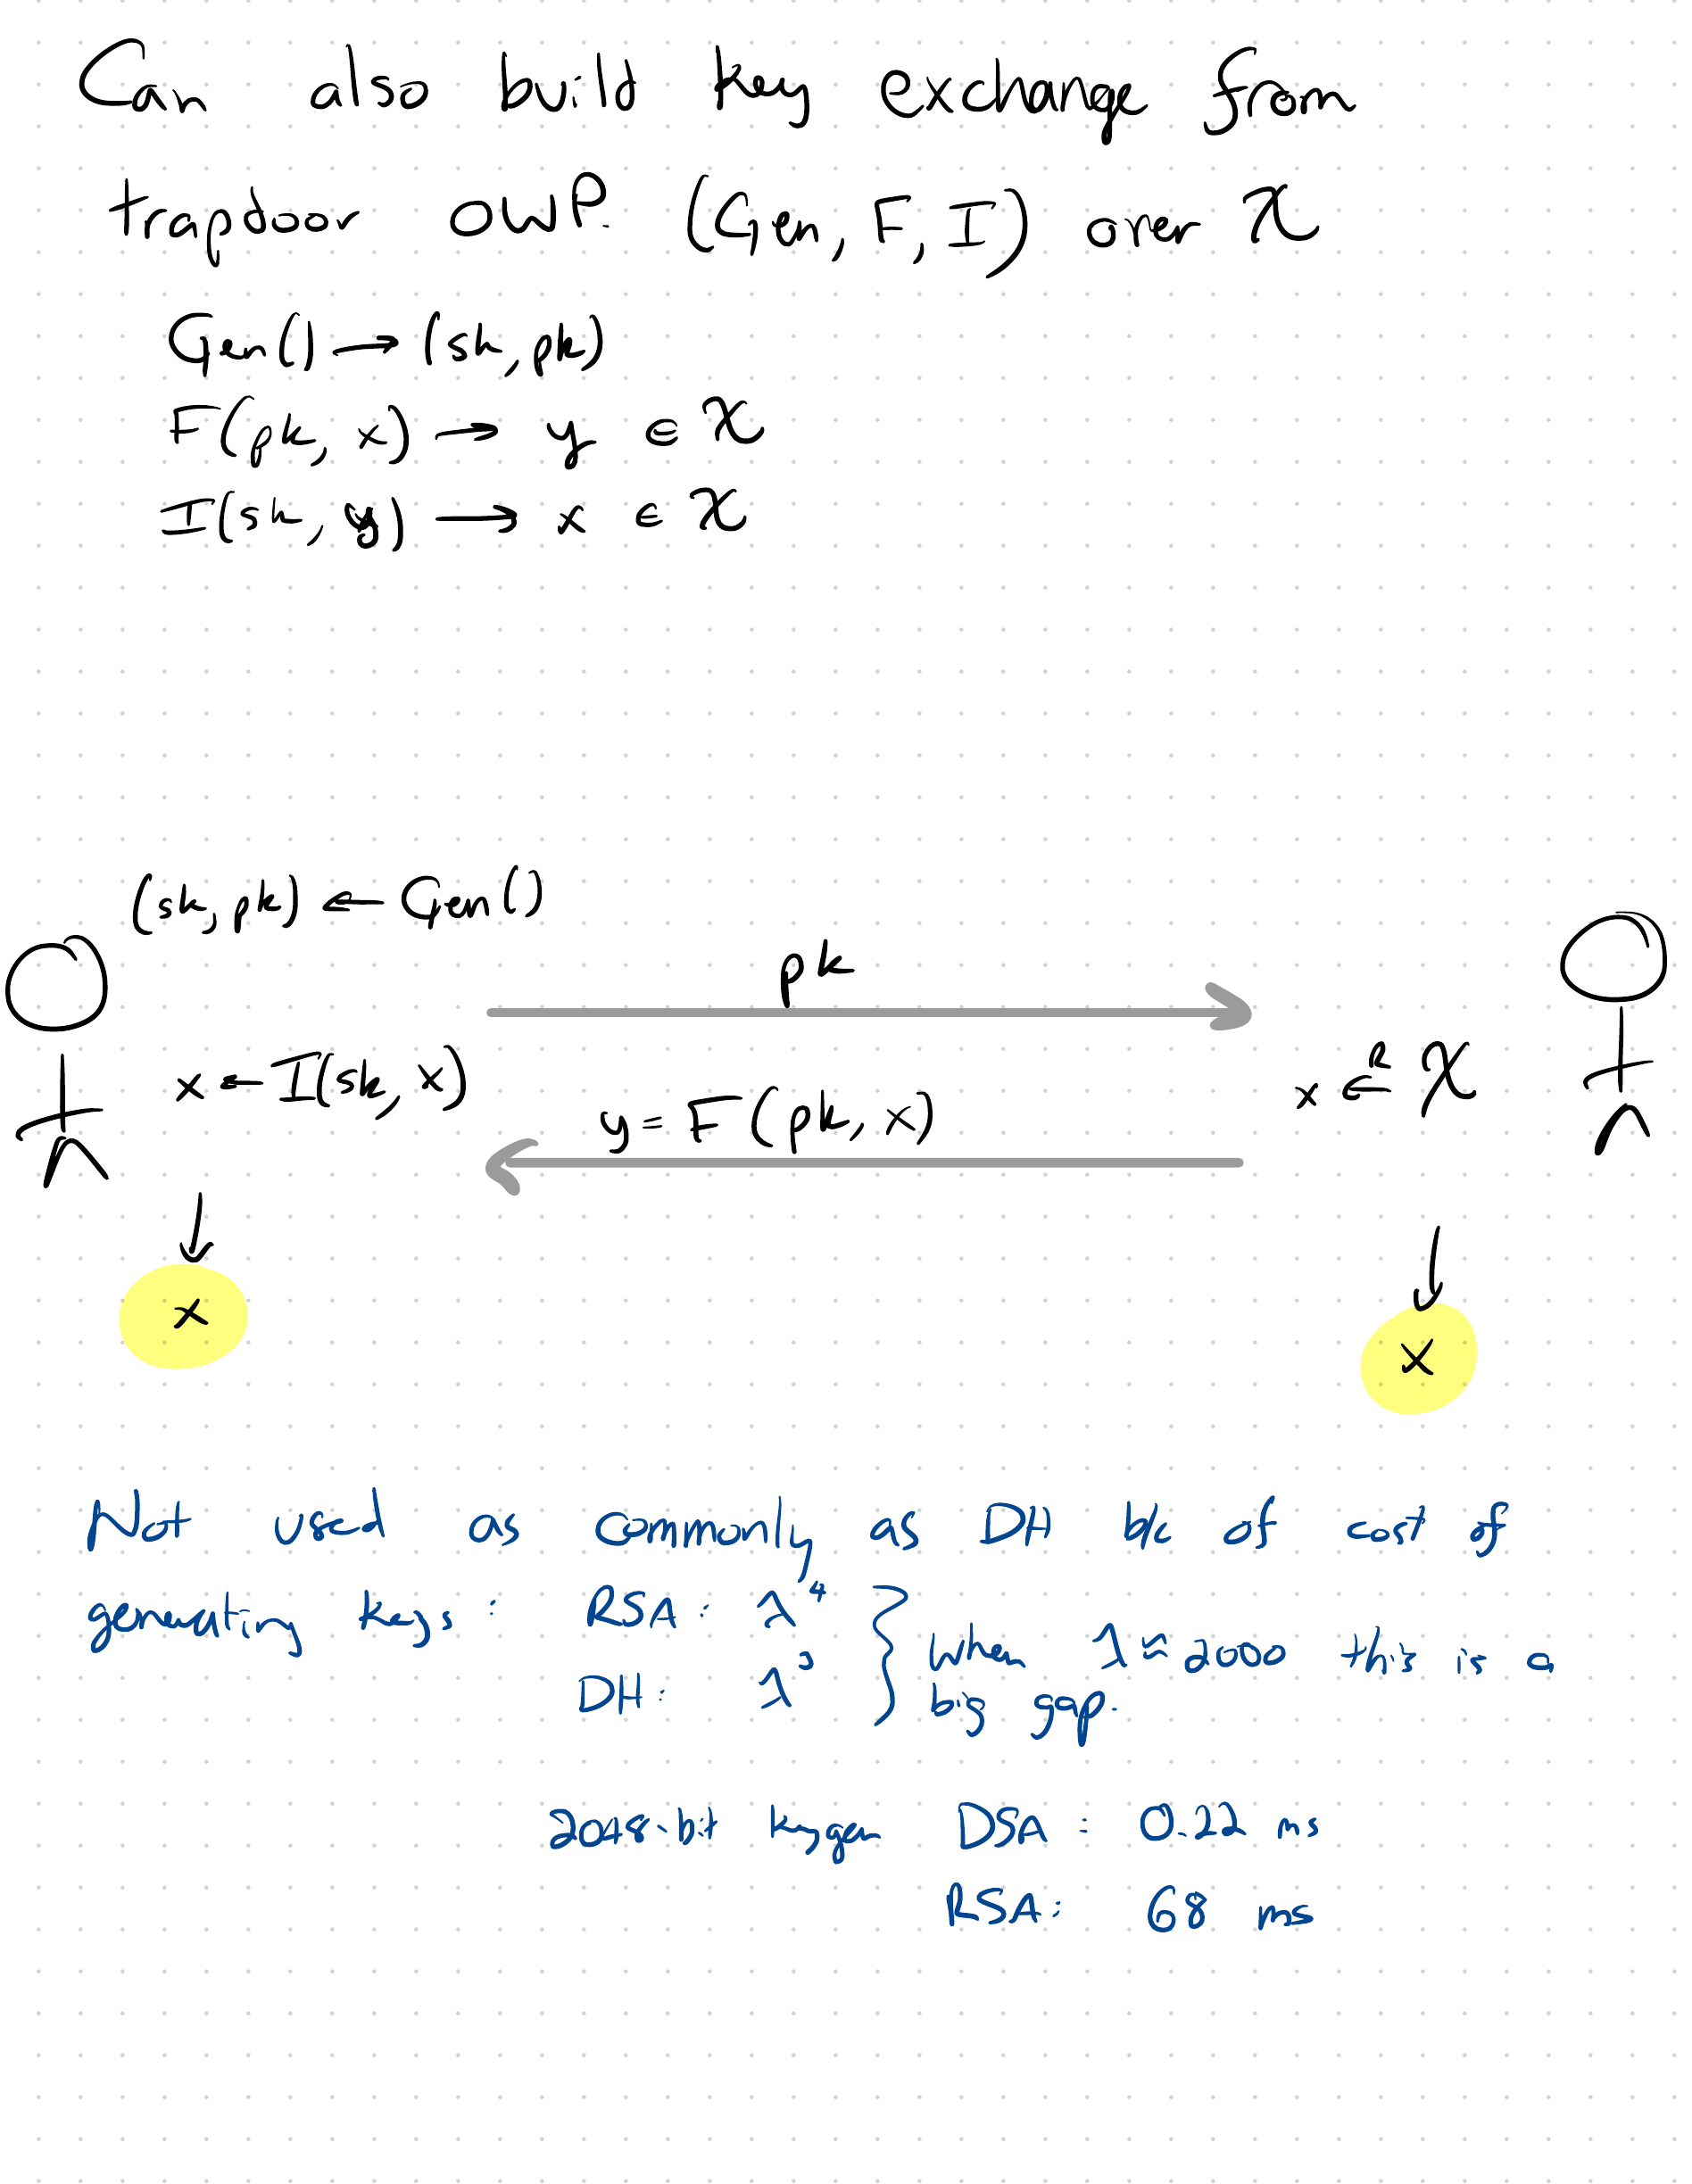 Can also build key exchange from
trapdoor OWP. (Gen, F, I) over X
Gen() → (sk, pk)
F(pk, x) → y ∈ X
I(sk, y) → x ∈ X
(sk, pk) ← Gen()
pk
x ← I(sk, x)
x ←ᴿ X
y = F(pk, x)
x
x
Not used as commonly as DH b/c of cost of
generating keys: RSA: λ⁴
DH: λ³
when λ ≈ 2000 this is a
big gap.
2048-bit keygen DSA: 0.22 ms
RSA: 68 ms